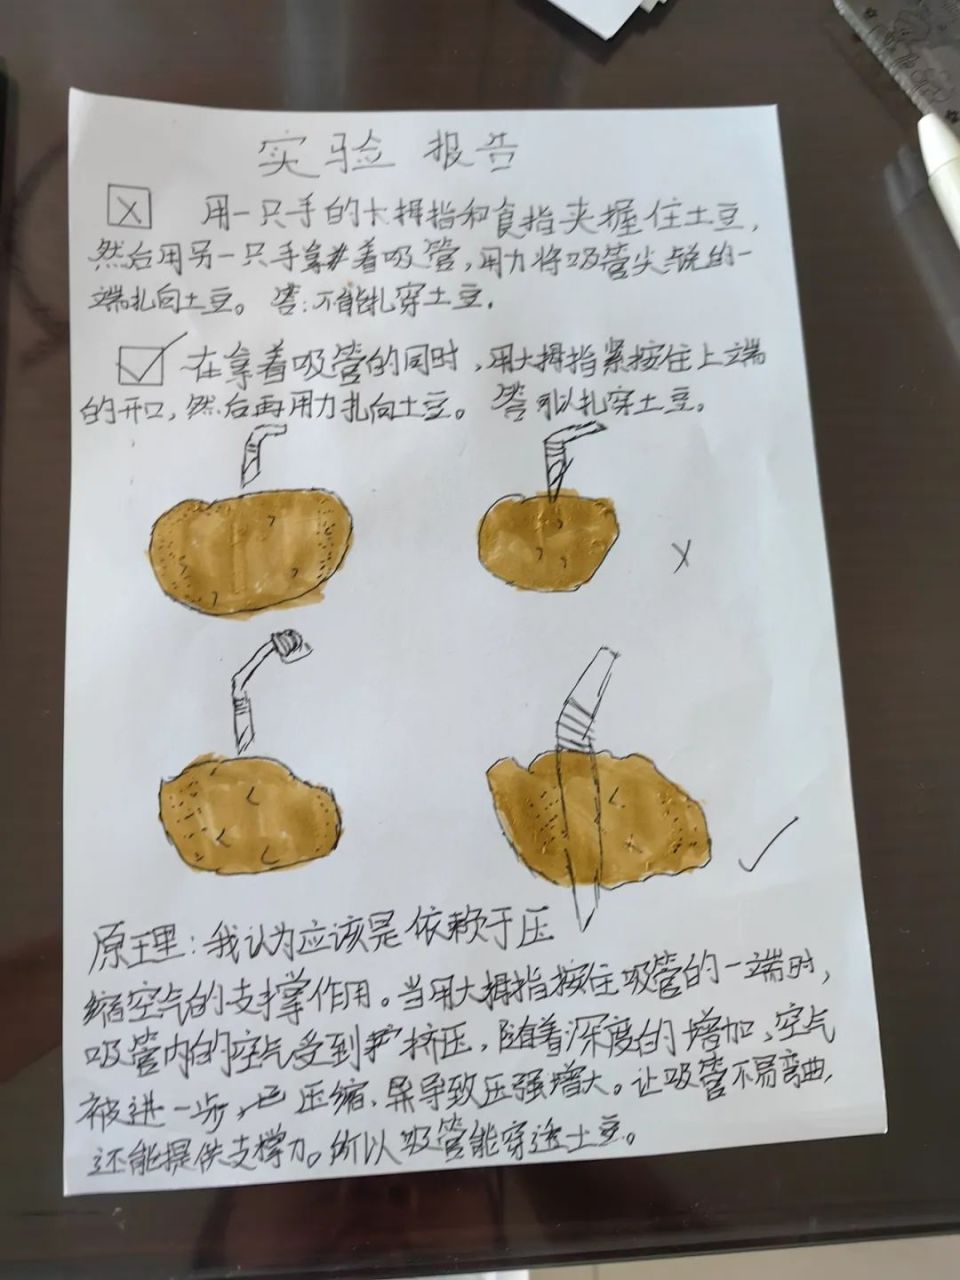 实验报告
☒ 用一只手的大拇指和食指夹握住土豆,
然后用另一只手拿着吸管,用力将吸管尖锐的一
端扎向土豆。答:不能扎穿土豆.
☑ 在拿着吸管的同时,用大拇指紧按住上端
的开口,然后再用力扎向土豆。答可以扎穿土豆。
X
✓
原理:我认为应该是依赖于压
缩空气的支撑作用。当用大拇指按住吸管的一端时,
吸管内的空气受到挤压,随着深度的增加、空气
被进一步压缩、导致压强增大。让吸管不易弯曲,
还能提供支撑力。所以吸管能穿透土豆。